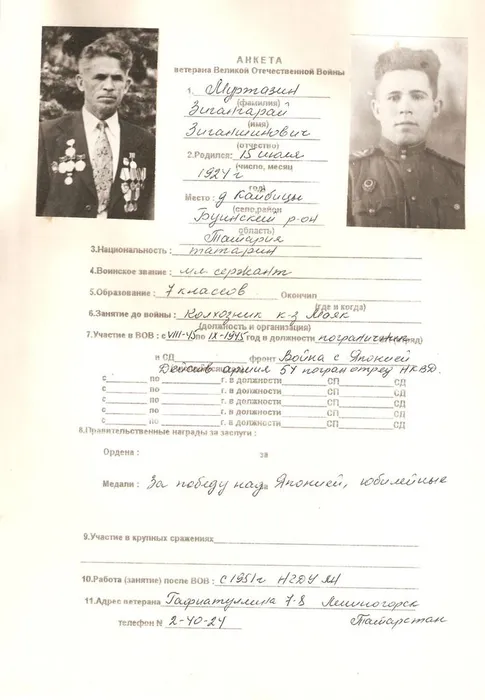 АНКЕТА
ветерана Великой Отечественной Войны
1. Муртазин
(фамилия)
Зигангарай
(имя)
Зиганшинович
(отчество)
2.Родился: 15 июля
(число, месяц
1924 г
год)
Место: д Кайбицы
(село, район
Буинский р-он
область)
Татария
3.Национальность: татарин
4.Воинское звание: мл сержант
5.Образование: 7 классов Окончил
(где и когда)
6.Занятие до войны: Колхозник к-з Маяк
(должность и организация)
7.Участие в ВОВ: с VIII-45 по IX-1945 год в должности пограничник
и СД фронт Война с Японией
Действ армия 57 погранотряд НКВД.
с по г. в должности СП СД
с по г. в должности СП СД
с по г. в должности СП СД
с по г. в должности СП СД
с по г. в должности СП СД
8.Правительственные награды за заслуги:
Ордена: за
Медали: За победу над Японией, юбилейные
9.Участие в крупных сражениях
10.Работа (занятие) после ВОВ: с 1951 г НГДУ ЛН
11.Адрес ветерана Гафиатуллина 7-8 Лениногорск
телефон № 2-40-24 Татарстан